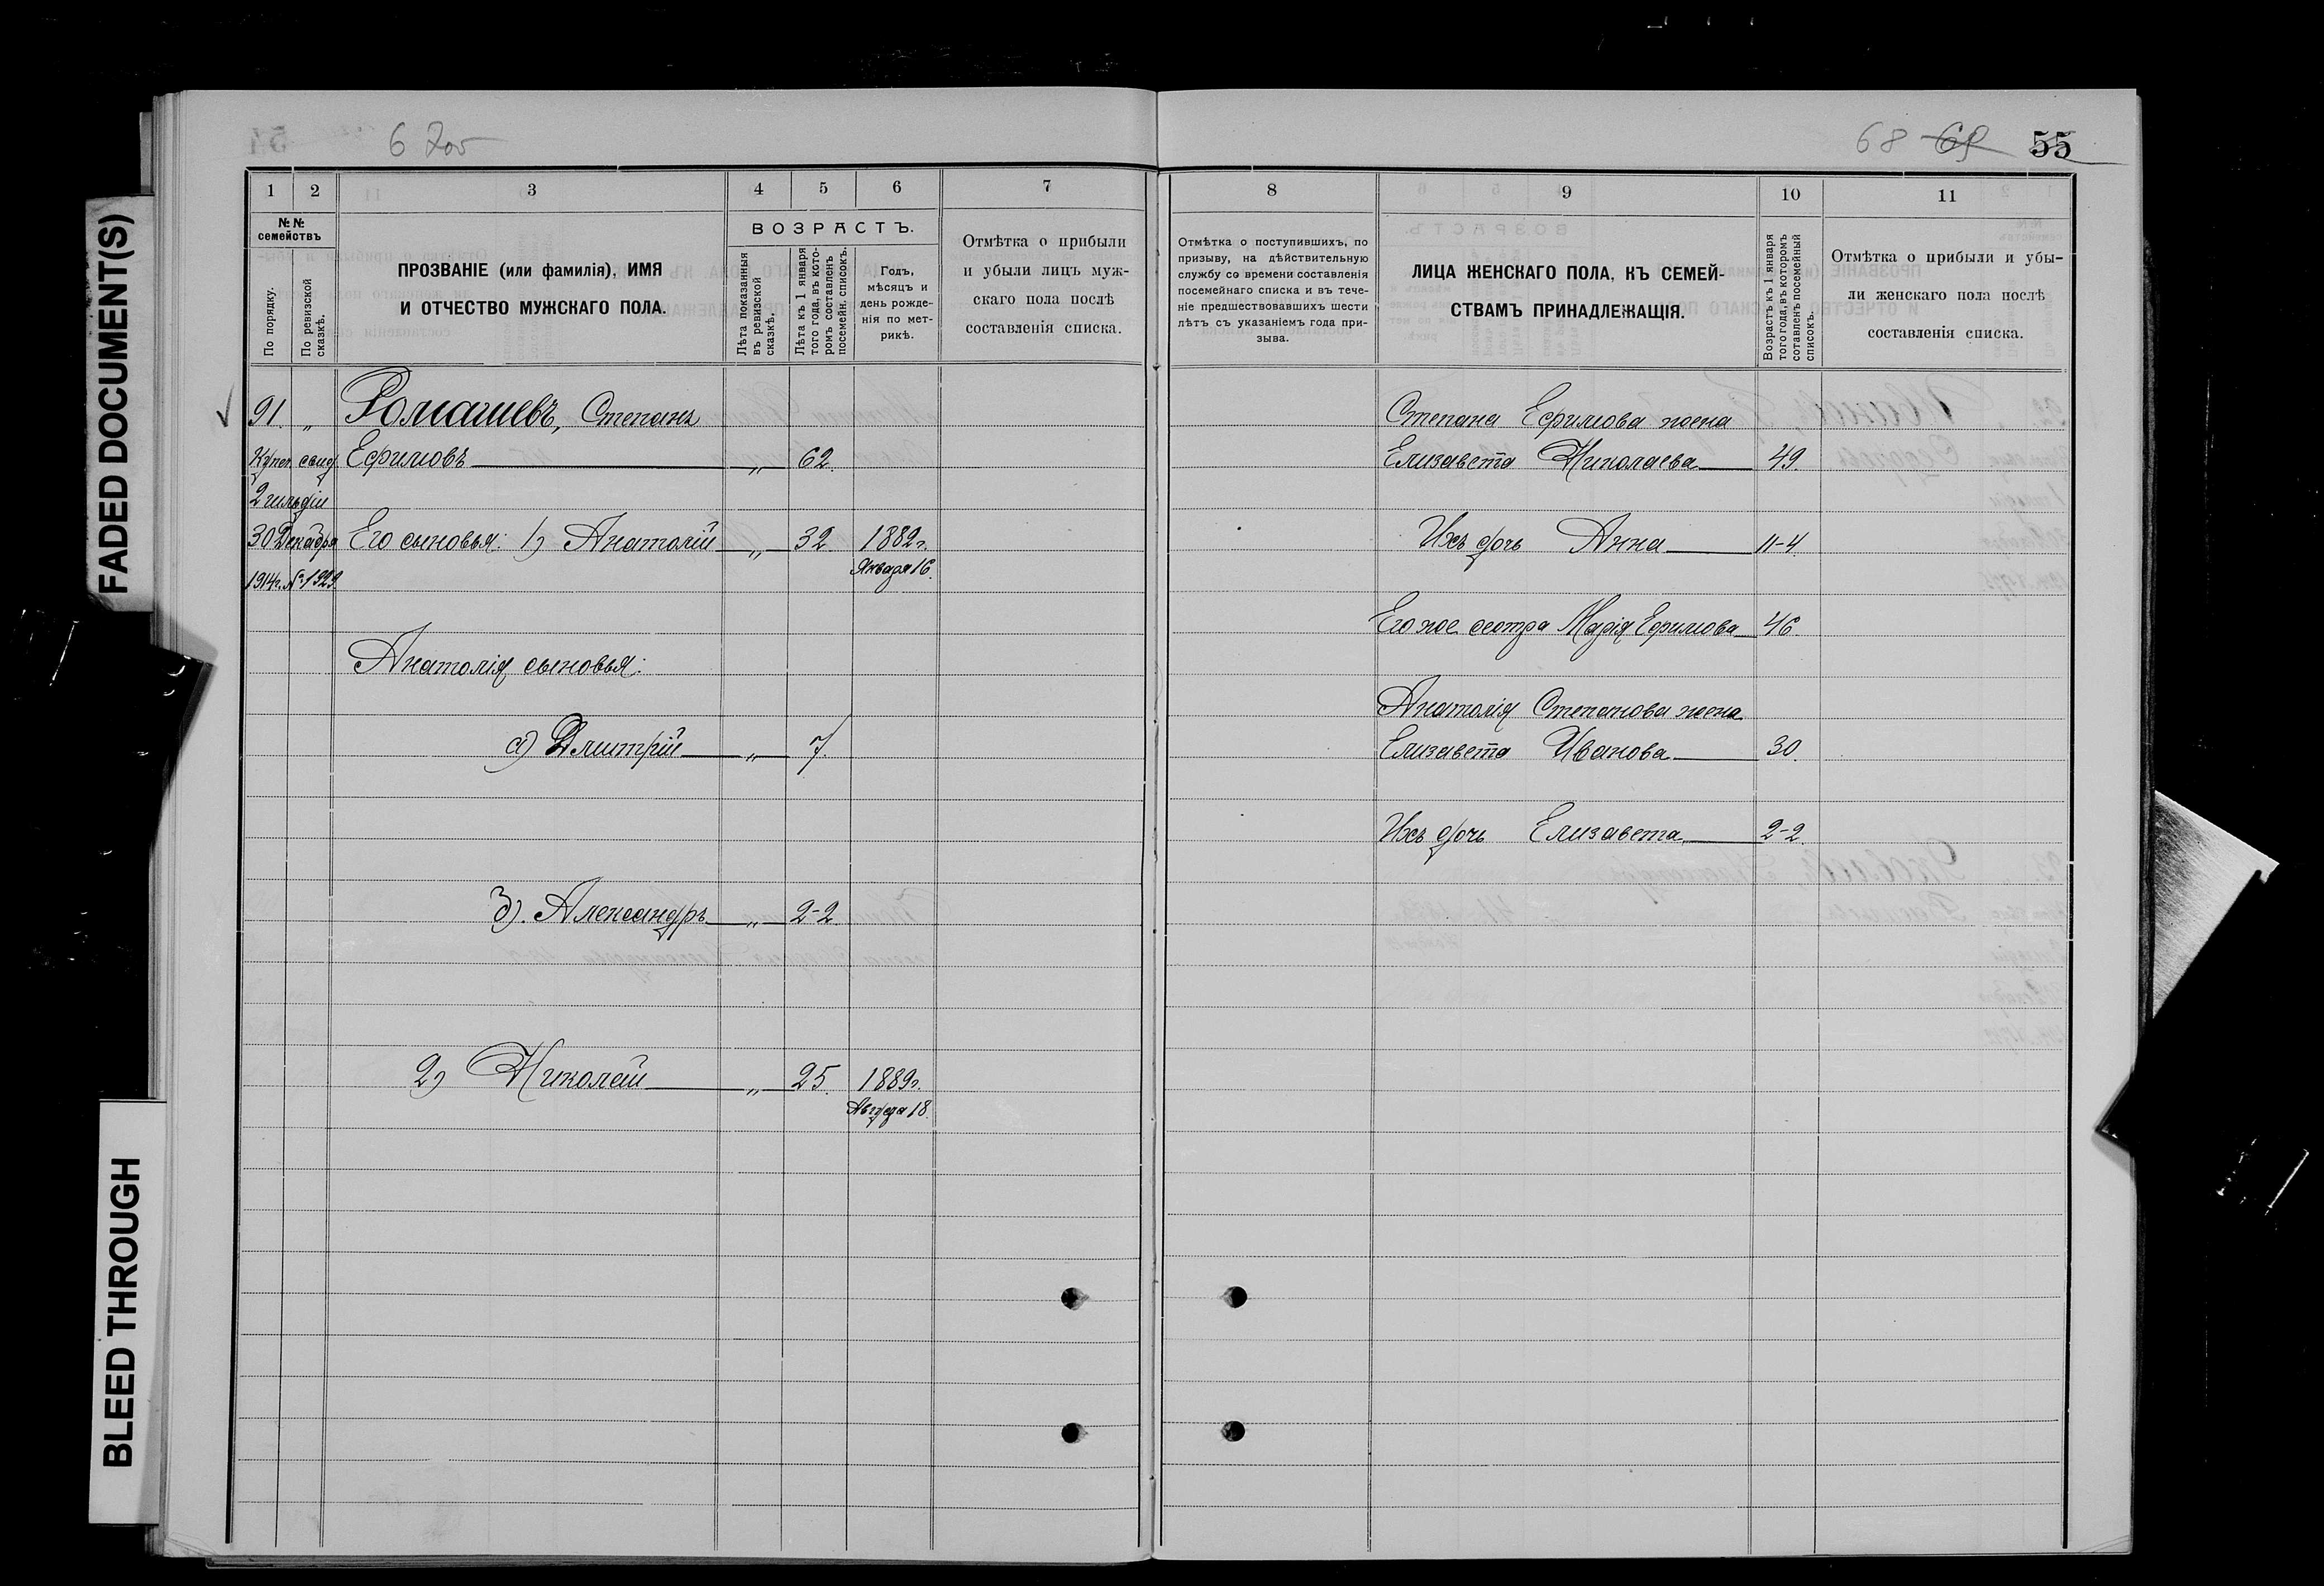 6 Зоо
68 69 55
1 2 3 4 5 6 7
№№ семействъ
По порядку.
По ревизской сказкѣ.
ПРОЗВАНІЕ (или фамилія), ИМЯ
И ОТЧЕСТВО МУЖСКАГО ПОЛА.
ВОЗРАСТЪ.
Лѣта показанныя въ ревизской сказкѣ.
Лѣта къ 1 января того года, въ котором составленъ посемейн. списокъ.
Годъ,
мѣсяцъ и
день рожде-
нія по мет-
рикѣ.
Отмѣтка о прибыли
и убыли лицъ муж-
скаго пола послѣ
составленія списка.
91. „ Ромашевъ, Степанъ
Купеч. свид. Ефимовъ „ 62.
2 гильдіи
30 Декабря Его сыновья: 1) Анатолій „ 32. 1882 г.
1914 г. № 1929. Января 16.
Анатолія сыновья:
а) Дмитрій „ 7.
б). Александръ „ 2-2.
2) Николай „ 25. 1889 г.
Августа 18.
8 9 10 11
Отмѣтка о поступившихъ, по
призыву, на дѣйствительную
службу со времени составленія
посемейнаго списка и въ тече-
ніе предшествовавшихъ шести
лѣтъ съ указаніемъ года при-
зыва.
ЛИЦА ЖЕНСКАГО ПОЛА, КЪ СЕМЕЙ-
СТВАМЪ ПРИНАДЛЕЖАЩІЯ.
Возрастъ къ 1 января
того года, въ которомъ
сотавленъ посемейный
списокъ.
Отмѣтка о прибыли и убы-
ли женскаго пола послѣ
составленія списка.
Степана Ефимова жена
Елизавета Николаева 49.
Ихъ дочь Анна 11-4.
Его же сестра Марія Ефимова 46.
Анатолія Степанова жена
Елизавета Иванова 30.
Ихъ дочь Елизавета 2-2.
FADED DOCUMENT(S)
BLEED THROUGH